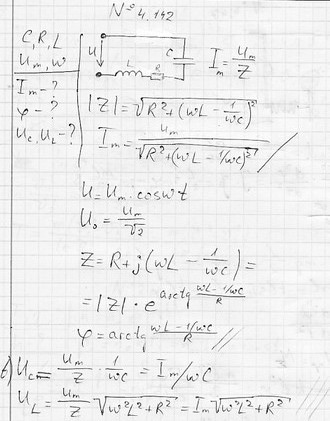 № 4.142
C, R, L
Um, ω
Im - ?
φ - ?
Uc, UL - ?
U
L
R
C
Im = Um/Z
|Z| = √(R² + (ωL - 1/ωC)²)
Im = Um/√(R² + (ωL - 1/ωC)²)
U = Um · cos ωt
U₀ = Um/√2
Z = R + j(ωL - 1/ωC) =
= |Z| · e^(arctg (ωL - 1/ωC)/R)
φ = arctg (ωL - 1/ωC)/R
Uc = Um/Z · 1/ωC = Im/ωC
UL = Um/Z √(ω²L² + R²) = Im √(ω²L² + R²)